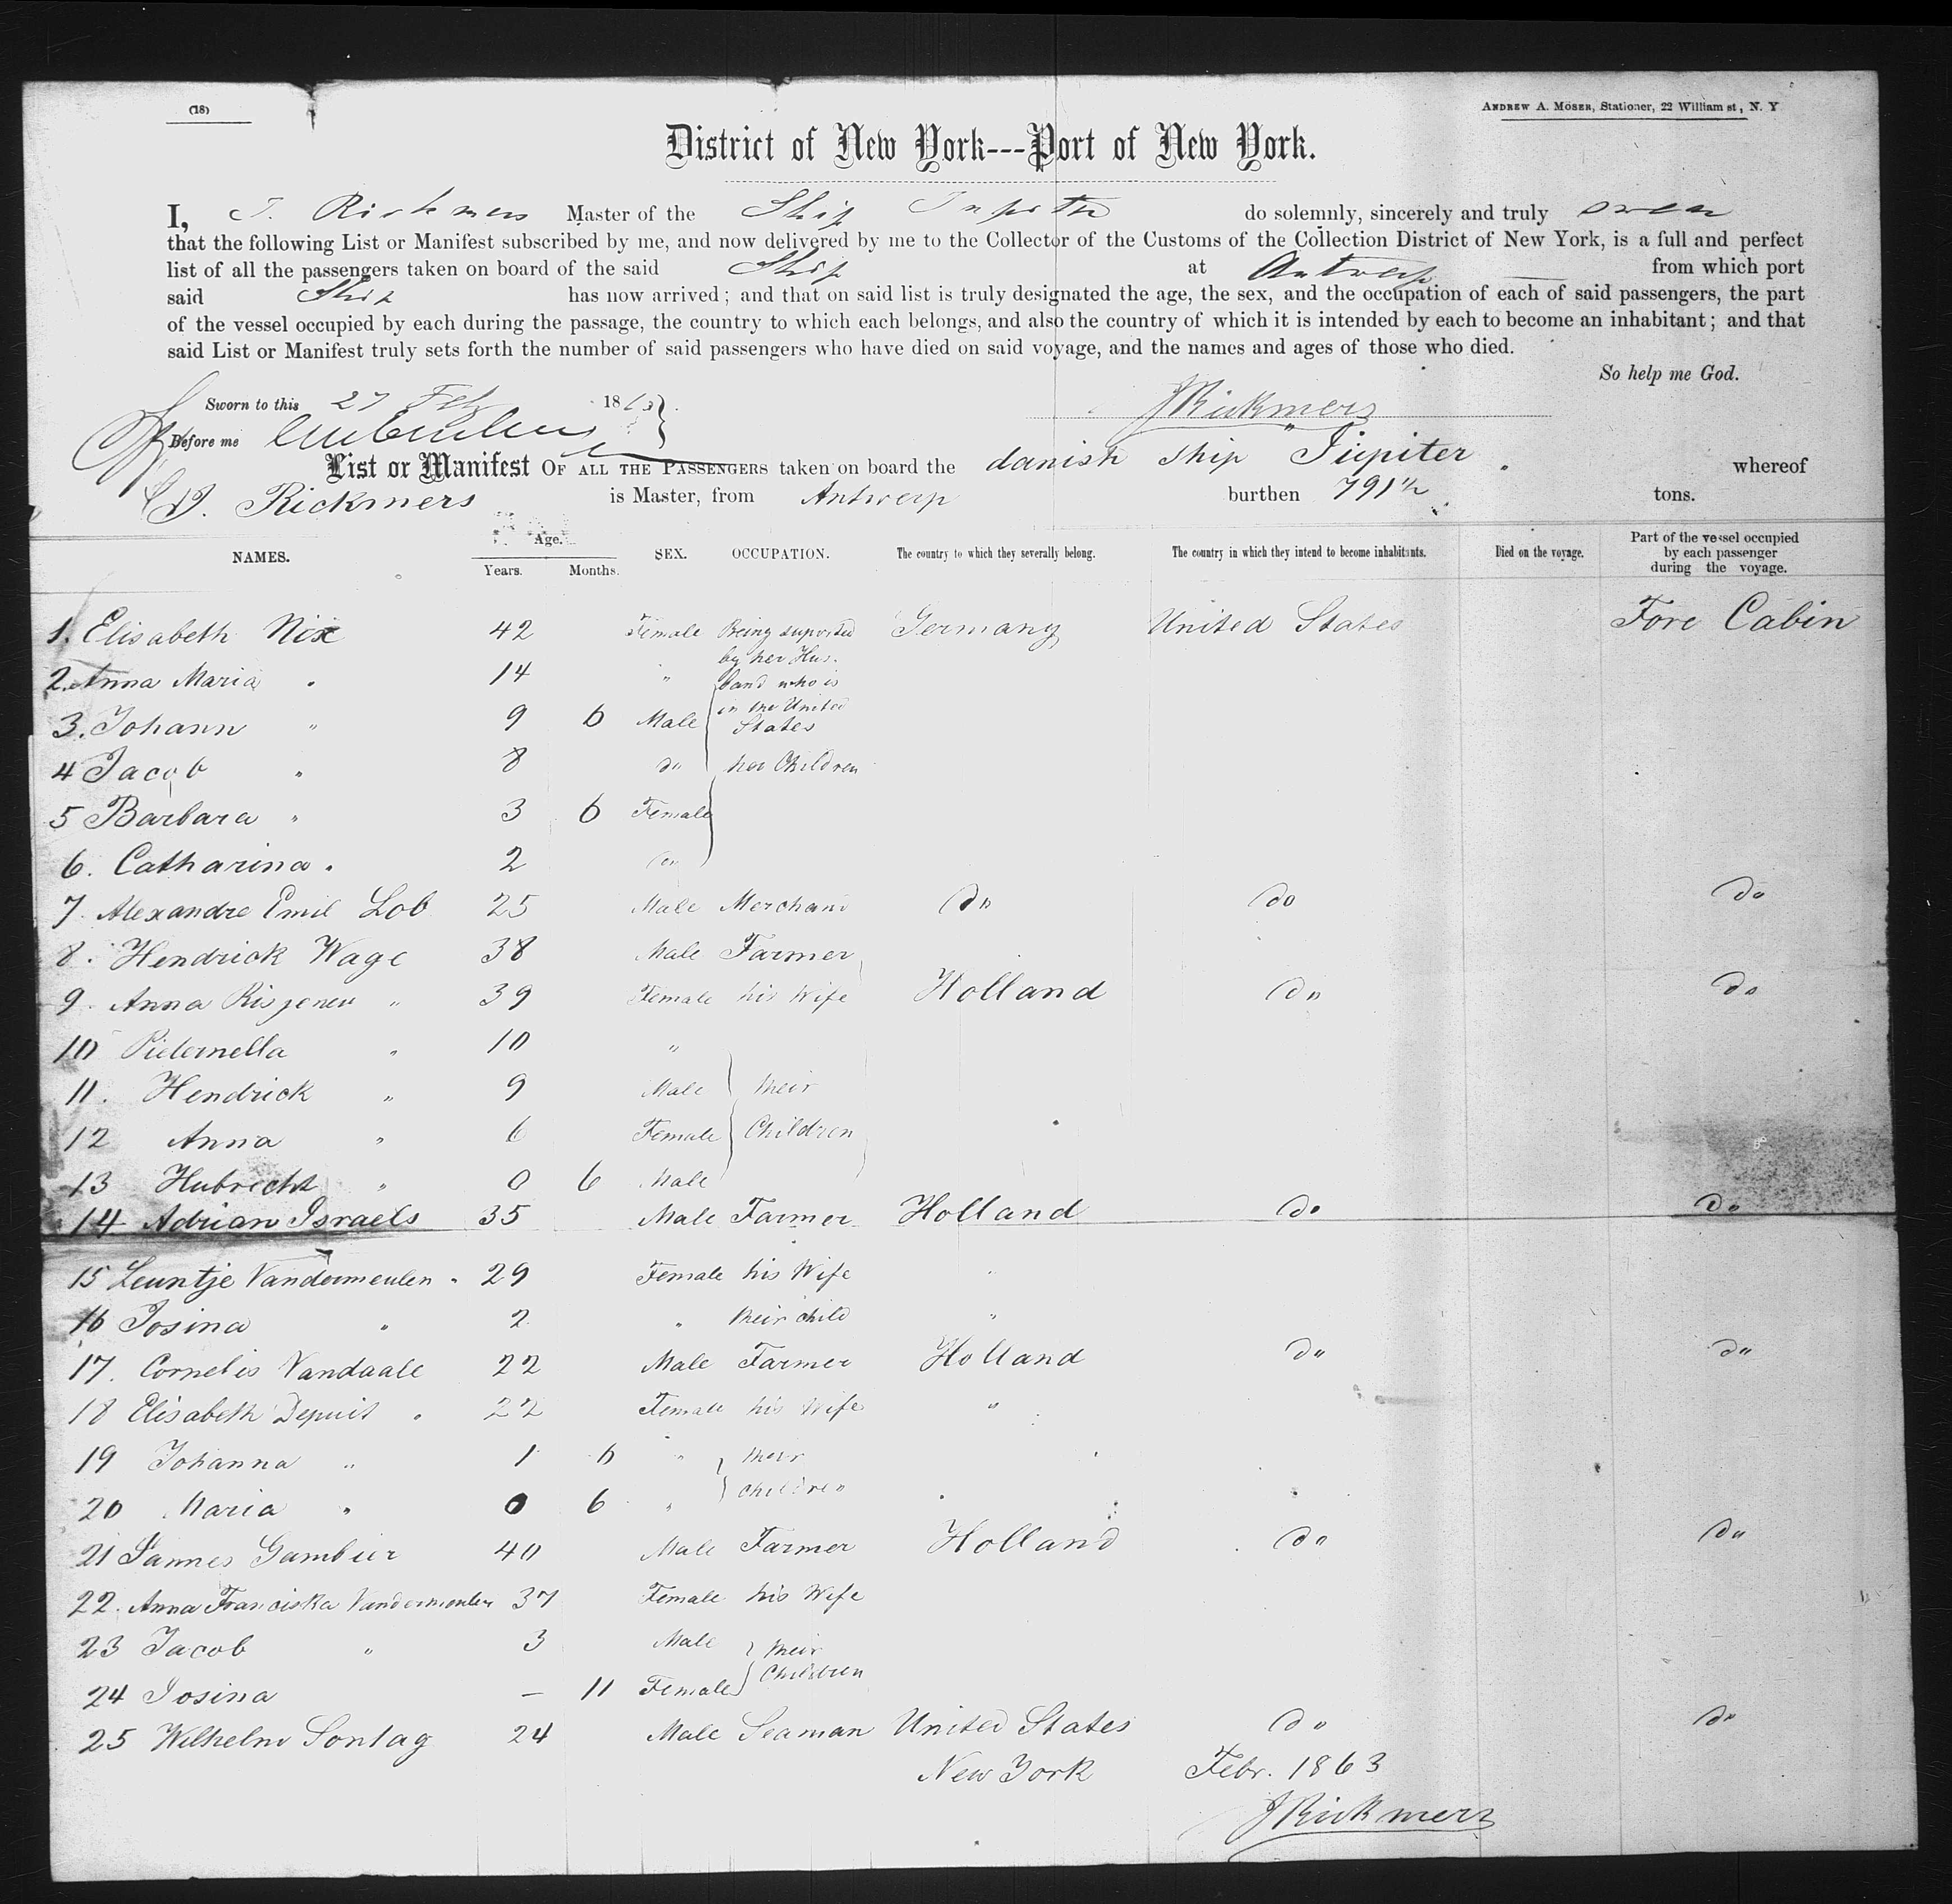 (18)
ANDREW A. MOSER, Stationer, 22 William st, N. Y
District of New York---Port of New York.
I, J. Rickmers Master of the Ship Jupiter do solemnly, sincerely and truly swear
that the following List or Manifest subscribed by me, and now delivered by me to the Collector of the Customs of the Collection District of New York, is a full and perfect
list of all the passengers taken on board of the said Ship at Antwerp from which port
said Ship has now arrived; and that on said list is truly designated the age, the sex, and the occupation of each of said passengers, the part
of the vessel occupied by each during the passage, the country to which each belongs, and also the country of which it is intended by each to become an inhabitant; and that
said List or Manifest truly sets forth the number of said passengers who have died on said voyage, and the names and ages of those who died.
So help me God.
Sworn to this 27 Feb 1863
JRickmers
Before me
List or Manifest OF ALL THE PASSENGERS taken on board the danish ship "Jupiter whereof
J. Rickmers is Master, from Antwerp burthen 791½ tons.
NAMES. Age. Years. Months. SEX. OCCUPATION. The country to which they severally belong. The country in which they intend to become inhabitants. Died on the voyage. Part of the vessel occupied by each passenger during the voyage.
1. Elisabeth Nix 42 Female Being suported Germany United States Fore Cabin
by her Hus-
2. Anna Maria " 14 " band who is
in the United
3. Johann " 9 6 Male States
4 Jacob " 8 do her Children
5 Barbara " 3 6 Female
6. Catharina " 2 do
7. Alexandre Emil Lob 25 Male Merchand do do do
8. Hendrick Wage 38 Male Farmer
9. Anna " 39 Female his Wife Holland do do
10 Pieternella " 10 "
11. Hendrick " 9 Male their
12 Anna " 6 Female Children
13 Hubrecht " 0 6 Male
14 Adrian Israels 35 Male Farmer Holland do do
15 Leuntje Vandermeulen " 29 Female his Wife "
16 Josina " 2 " their child "
17. Cornelis Vandaale 22 Male Farmer Holland do do
18 Elisabeth Depuit " 22 Female his Wife "
19 Johanna " 1 6 " their
20 Maria " 0 6 " children
21 Jannes Gambier 40 Male Farmer Holland do do
22. Anna Franciska Vandermeulen 37 Female his Wife
23 Jacob " 3 Male their
24 Josina — 11 Female Children
25 Wilhelm Sontag 24 Male Seaman United States do do
New York Febr. 1863
JRickmers